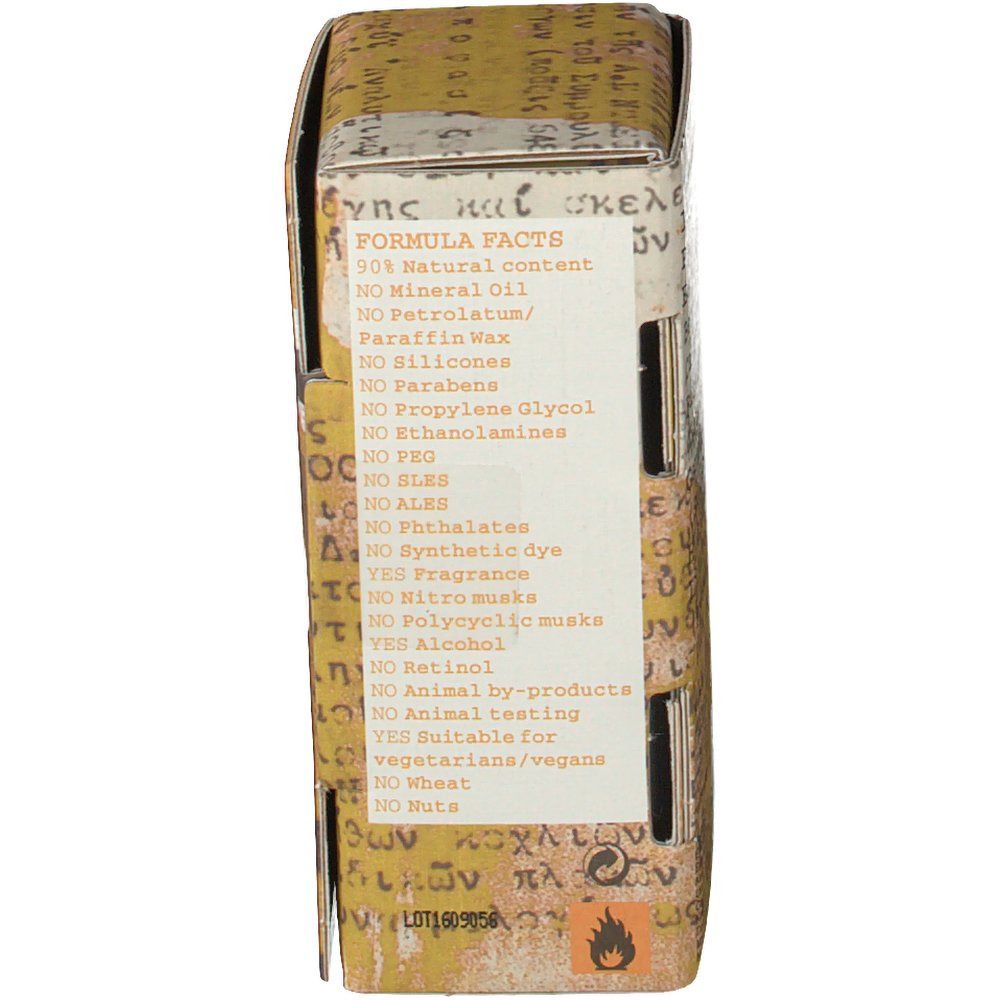 ἔχης καὶ σκελε
FORMULA FACTS
90% Natural content
NO Mineral Oil
NO Petrolatum/
Paraffin Wax
NO Silicones
NO Parabens
NO Propylene Glycol
NO Ethanolamines
NO PEG
NO SLES
NO ALES
NO Phthalates
NO Synthetic dye
YES Fragrance
NO Nitro musks
NO Polycyclic musks
YES Alcohol
NO Retinol
NO Animal by-products
NO Animal testing
YES Suitable for
vegetarians/vegans
NO Wheat
NO Nuts
κοχλιῶν
LOT1609056